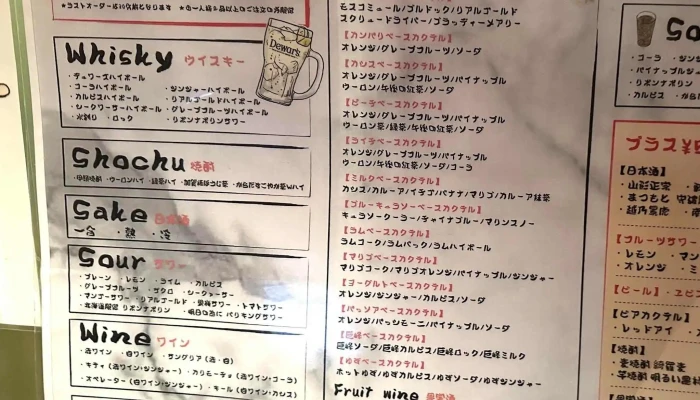 Whisky ウイスキー
・デュワーズハイボール
・コーラハイボール ・ジンジャーハイボール
・カルピスハイボール ・リアルゴールドハイボール
・シークワーサーハイボール ・グレープフルーツハイボール
・水割り ・ロック ・リボンナポリンサワー
Dewar's
Shochu 焼酎
Sake 日本酒
一合 ・熱 ・冷
Sour サワー
・プレーン ・レモン ・ライム ・カルピス
・グレープフルーツ ・ザクロ ・シークヮーサー
・マンゴーサワー ・リアルゴールド ・トマトサワー
・北海道限定 リボンナポリン ・明日の為に バリキングサワー
Wine ワイン
・赤ワイン ・白ワイン ・サングリア(赤・白)
・キティ(赤ワイン・ジンジャー) ・カリモーチョ(赤ワイン・コーラ)
・スペレーター(白ワイン・ジンジャー) ・キール(白ワイン・カシス)
モスコミュール/ブルドック/リアルゴールド
スクリュードライバー/ブラッディーメアリー
【カンパリベースカクテル】
オレンジ/グレープフルーツ/ソーダ
【カシスベースカクテル】
オレンジ/グレープフルーツ/パイナップル
ウーロン/午後の紅茶/ソーダ
【ピーチベースカクテル】
オレンジ/グレープフルーツ/パイナップル
ウーロン茶/緑茶/午後の紅茶/ソーダ
【ライチベースカクテル】
オレンジ/グレープフルーツ/パイナップル
ウーロン/午後の紅茶/ソーダ/コーラ
【ミルクベースカクテル】
カシス/カルーア/イチゴ/バナナ/マリブ/カルーア抹茶
【ブルーキュラソーベースカクテル】
キュラソークーラー/チャイナブルー/マリンスノー
【ラムベースカクテル】
ラムコーク/ラムバック/ラムハイボール
【マリブベースカクテル】
マリブコーク/マリブオレンジ/パイナップル/ジンジャー
【ヨーグルトベースカクテル】
オレンジ/ジンジャー/カルピス/ソーダ
【パッソアベースカクテル】
オレンジ/パッシモーニ/パイナップル/ソーダ
【巨峰ベースカクテル】
巨峰ソーダ/巨峰カルピス/巨峰ロック/巨峰ミルク
【ゆずベースカクテル】
ホットゆず/ゆずカルピス/ゆずソーダ/ゆずジンジャー
Fruit wine 果実酒
・コーラ
・パイナップル
・リボンナポリン
・カルピス
プラス¥
【日本酒】
・山形正宗
・まつもと
・越乃寒梅
【フルーツサワー
・レモン
・オレンジ
【ビール】
【ビアカクテル】
・レッドアイ
【焼酎】